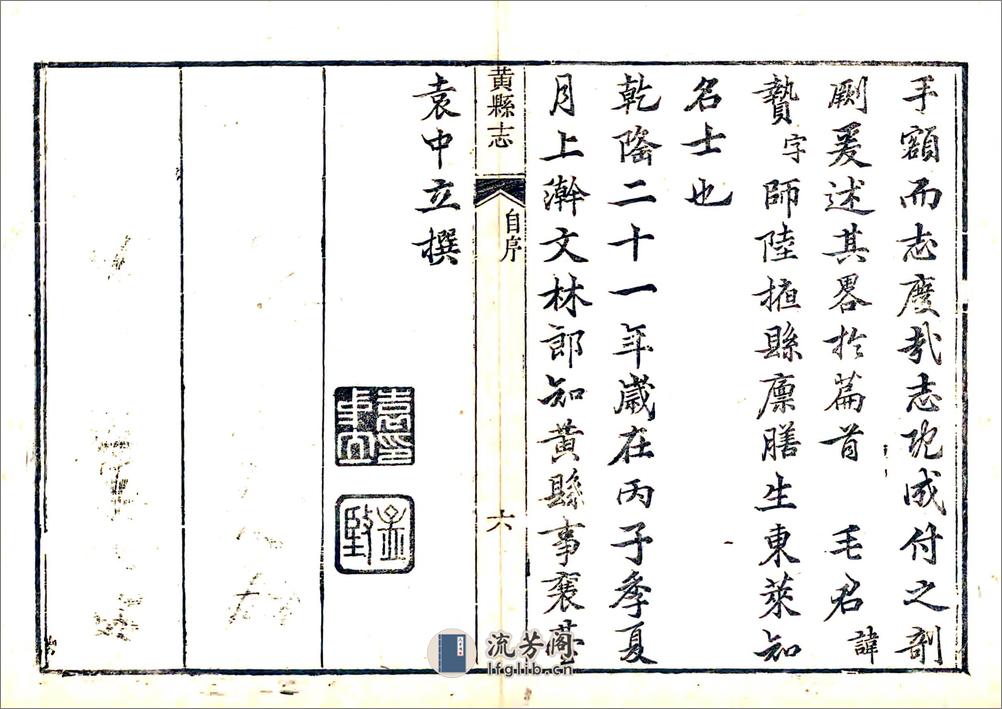 手額而志慶哉志既成付之剞
劂爰述其畧於篇首　毛君諱
贄字師陸掖縣廩膳生東萊知
名士也
乾隆二十一年歲在丙子季夏
月上澣文林郎知黃縣事
黃縣志
自序
六
袁中立撰
袁印中立
流芳阁
lfglib.cn